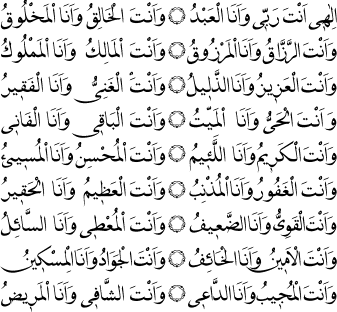 اِلٰهِى اَنْتَ رَبِّى وَاَنَا الْعَبْدُ ۞ وَاَنْتَ الْخَالِقُ وَاَنَا الْمَخْلُوقُ
وَاَنْتَ الرَّزَّاقُ وَاَنَا الْمَرْزُوقُ ۞ وَاَنْتَ الْمَالِكُ وَاَنَا الْمَمْلُوكُ
وَاَنْتَ الْعَزِيزُ وَاَنَا الذَّلِيلُ ۞ وَاَنْتَ الْغَنِىُّ وَاَنَا الْفَقِيرُ
وَاَنْتَ الْحَىُّ وَاَنَا الْمَيِّتُ ۞ وَاَنْتَ الْبَاقِى وَاَنَا الْفَانِى
وَاَنْتَ الْكَرِيمُ وَاَنَا اللَّئِيمُ ۞ وَاَنْتَ الْمُحْسِنُ وَاَنَا الْمُسِيئُ
وَاَنْتَ الْغَفُورُ وَاَنَا الْمُذْنِبُ ۞ وَاَنْتَ الْعَظِيمُ وَاَنَا الْحَقِيرُ
وَاَنْتَ الْقَوِىُّ وَاَنَا الضَّعِيفُ ۞ وَاَنْتَ الْمُعْطِى وَاَنَا السَّائِلُ
وَاَنْتَ الْاَمِينُ وَاَنَا الْخَائِفُ ۞ وَاَنْتَ الْجَوَادُ وَاَنَا الْمِسْكِينُ
وَاَنْتَ الْمُجِيبُ وَاَنَا الدَّاعِى ۞ وَاَنْتَ الشَّافِى وَاَنَا الْمَرِيضُ